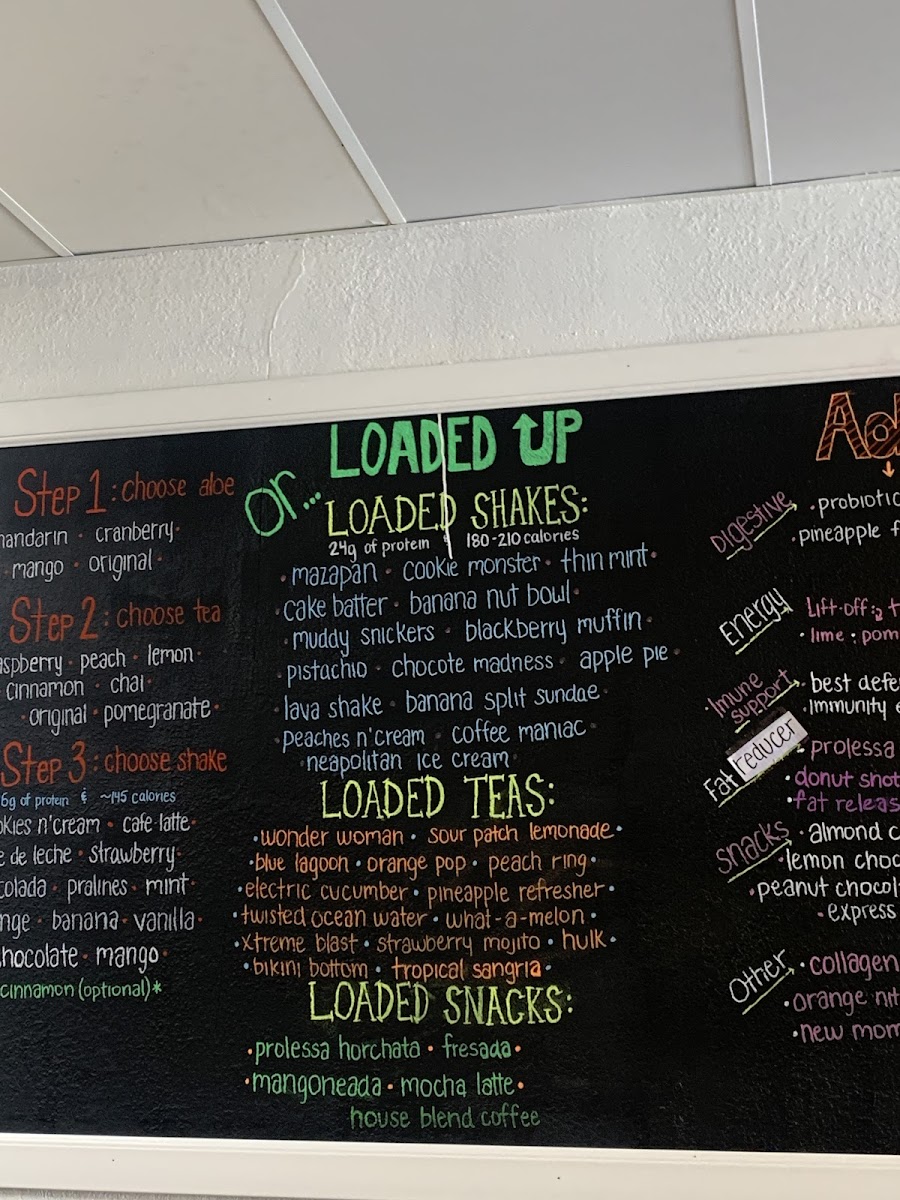 Step 1: choose aloe
mandarin · cranberry·
mango · original ·
Step 2: choose tea
raspberry · peach · lemon·
cinnamon · chai·
original · pomegranate·
Step 3: choose shake
6g of protein & ~145 calories
n'cream · cafe latte·
de leche · strawberry·
colada · pralines · mint·
banana· vanilla·
chocolate · mango·
cinnamon (optional)*
or...
LOADED UP
LOADED SHAKES:
24g of protein & 180-210 calories
·mazapan · cookie monster · thin mint·
·cake batter · banana nut bowl·
·muddy snickers · blackberry muffin·
·pistachio · chocote madness · apple pie·
·lava shake · banana split sundae·
·peaches n'cream · coffee maniac·
·neapolitan ice cream·
LOADED TEAS:
·wonder woman · sour patch lemonade·
·blue lagoon · orange pop · peach ring·
·electric cucumber · pineapple refresher·
·twisted ocean water · what-a-melon·
·xtreme blast · strawberry mojito · hulk·
·bikini bottom · tropical sangria·
LOADED SNACKS:
·prolessa horchata · fresada·
·mangoneada · mocha latte·
house blend coffee
Digestive
·probiotic
·pineapple
Energy
Lift-off:
·lime ;
Imune support
·best
·immunity
Fat reducer
·prolessa
·donut shot
·fat
Snacks
·almond
·lemon
·peanut
·express
Other
·collagen
·orange
·new